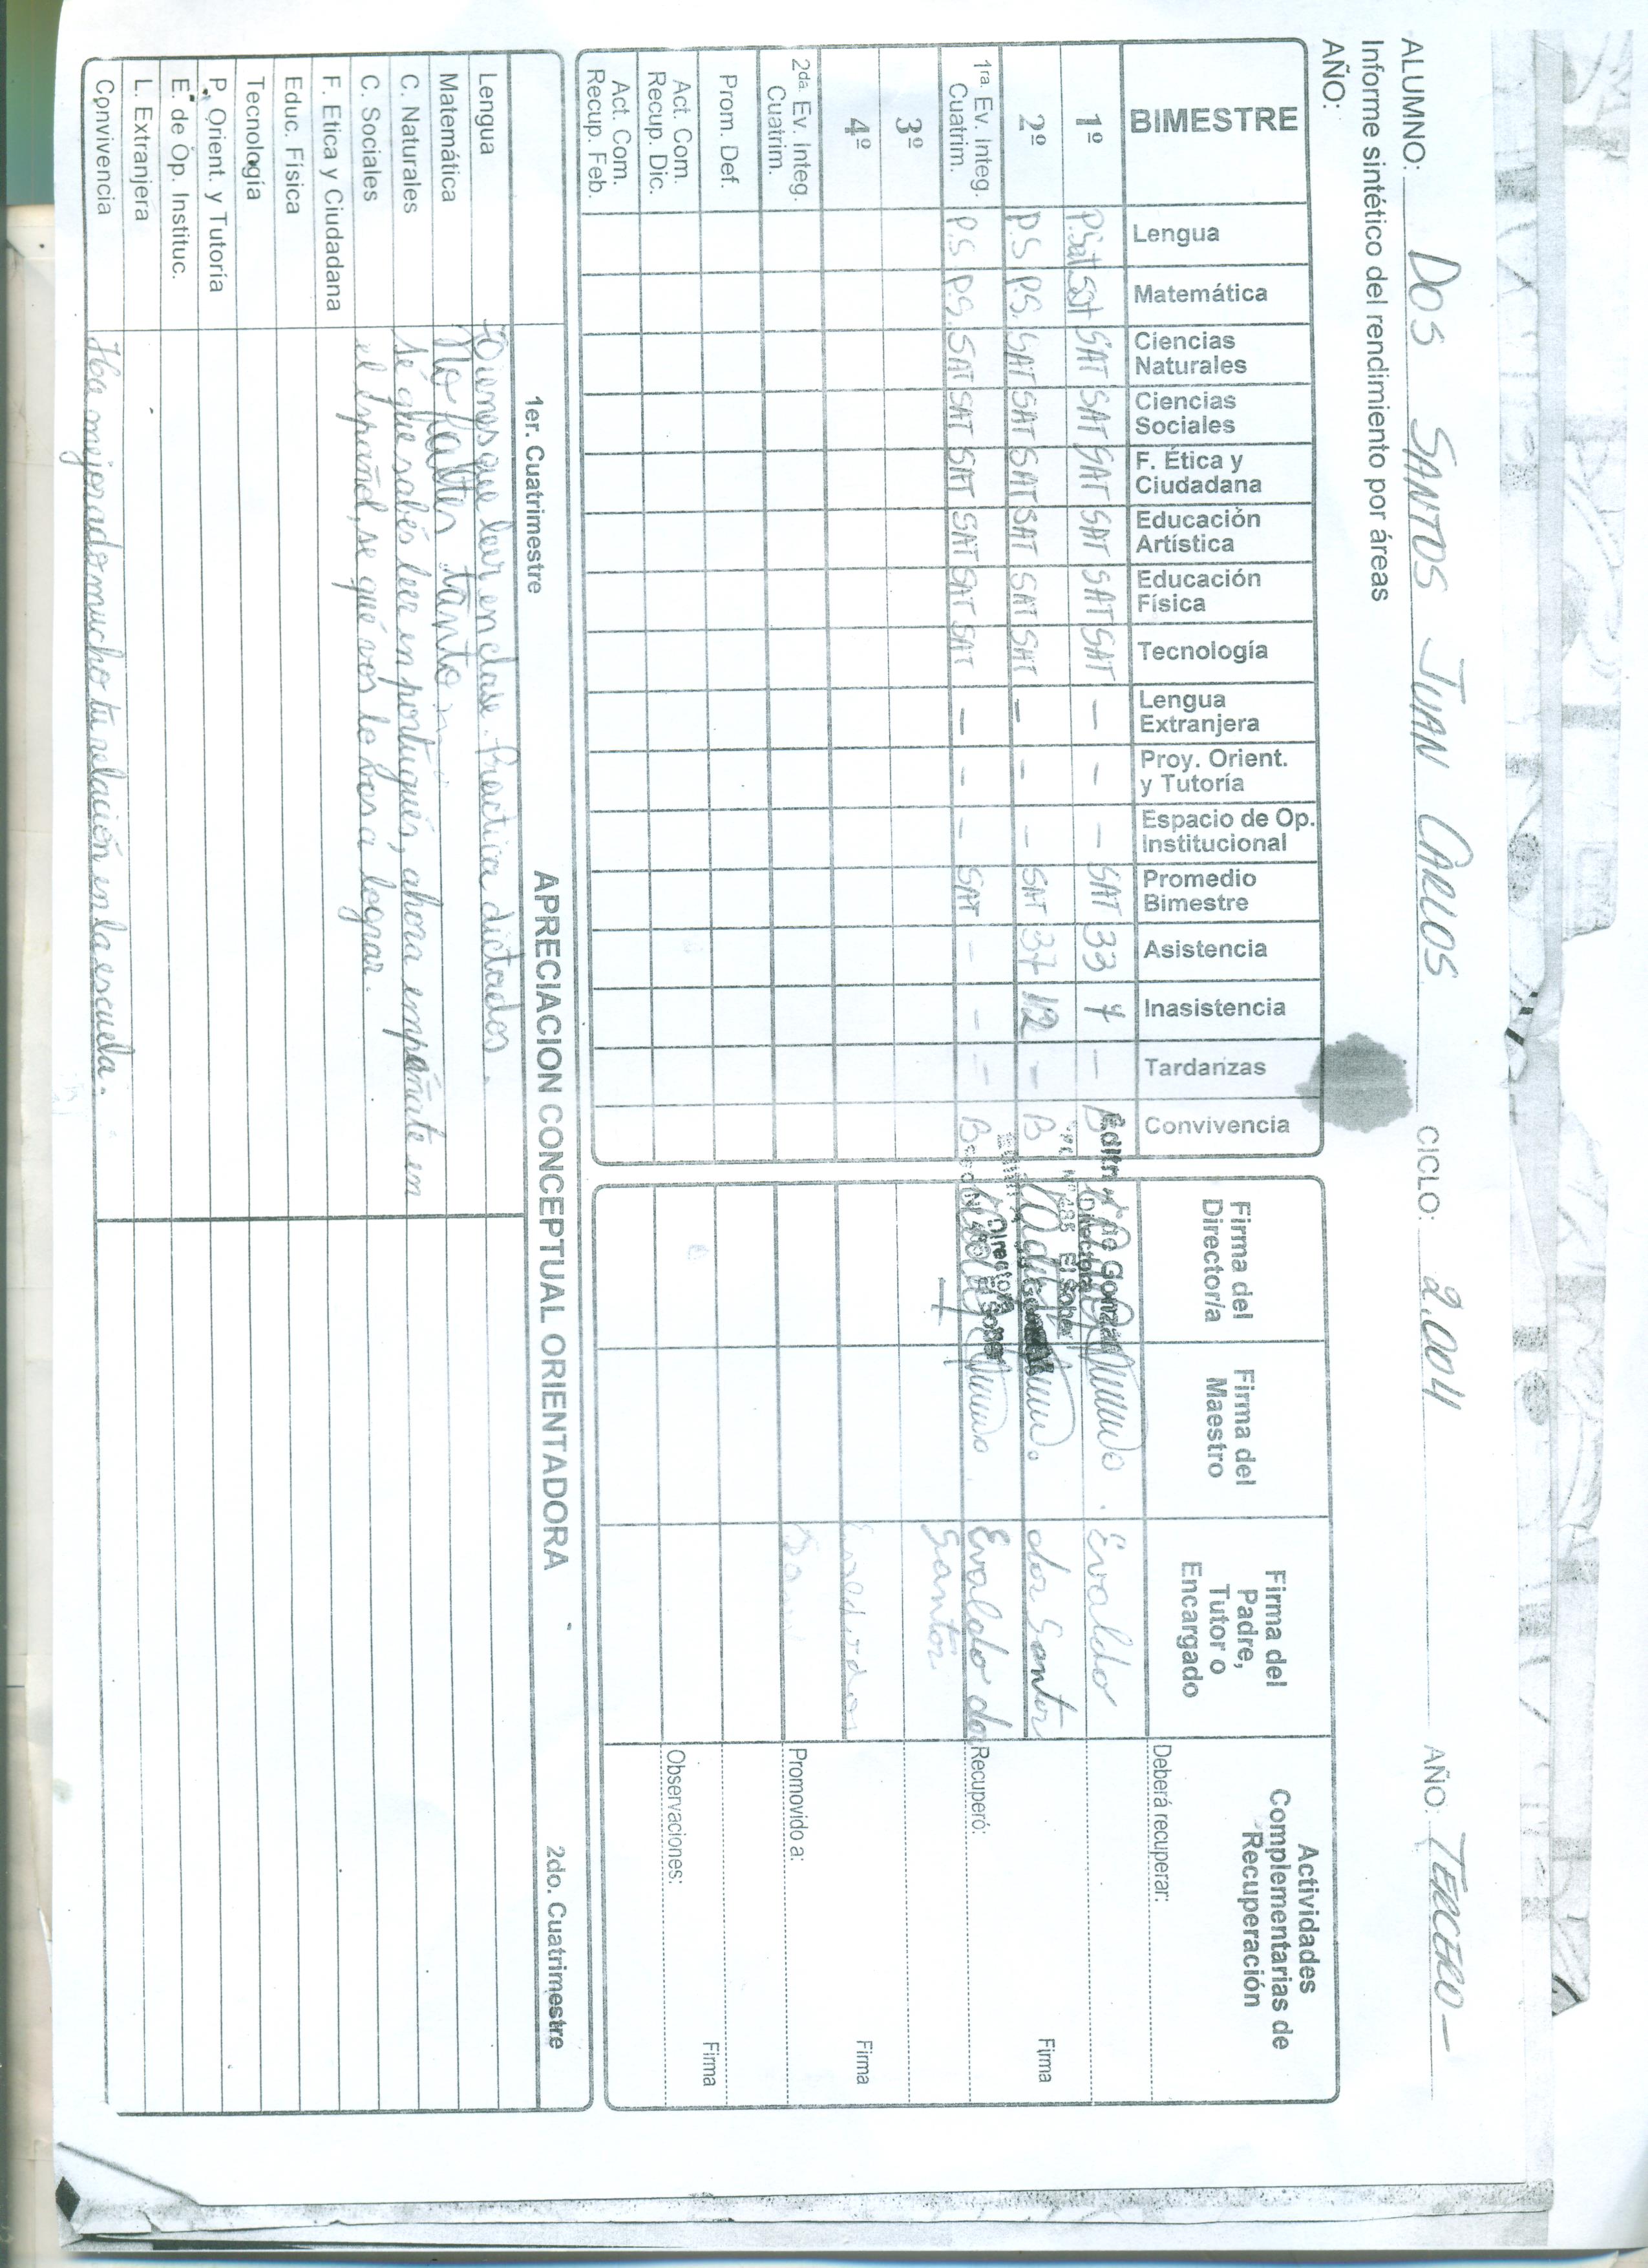 ALUMNO: DOS SANTOS JUAN CARLOS CICLO: 2.004 AÑO: TERCERO -
Informe sintético del rendimiento por áreas
AÑO:
BIMESTRE Lengua Matemática Ciencias Naturales Ciencias Sociales F. Ética y Ciudadana Educación Artística Educación Física Tecnología Lengua Extranjera Proy. Orient. y Tutoría Espacio de Op. Institucional Promedio Bimestre Asistencia Inasistencia Tardanzas Convivencia Firma del Director/a Firma del Maestro Firma del Padre, Tutor o Encargado Actividades Complementarias de Recuperación
1º P.Sat Sat SAT SAT SAT SAT SAT SAT - - - SAT 33 7 - B Evaldo Deberá recuperar:
2º P.S P.S. SAT SAT SAT SAT SAT SAT - - - SAT 37 12 - B dos Santos Firma
1ra. Ev. Integ. Cuatrim. P.S P.S. SAT SAT SAT SAT SAT SAT - - - SAT - - - B Directora Evaldo dos Santos Recuperó:
3º
4º Firma
2da. Ev. Integ. Cuatrim. Promovido a:
Prom. Def. Firma
Act. Com. Recup. Dic. Observaciones:
Act. Com. Recup. Feb.
APRECIACION CONCEPTUAL ORIENTADORA
1er. Cuatrimestre 2do. Cuatrimestre
Lengua Tienes que leer en clase. Practica dictados.
Matemática No faltes tanto
C. Naturales Sé que sabés leer en portugués, ahora empéñate en
C. Sociales el español, se que vos lo vas a lograr.
F. Etica y Ciudadana
Educ. Física
Tecnología
P. Orient. y Tutoría
E. de Op. Instituc.
L. Extranjera
Convivencia Ha mejorado mucho tu relación en la escuela.